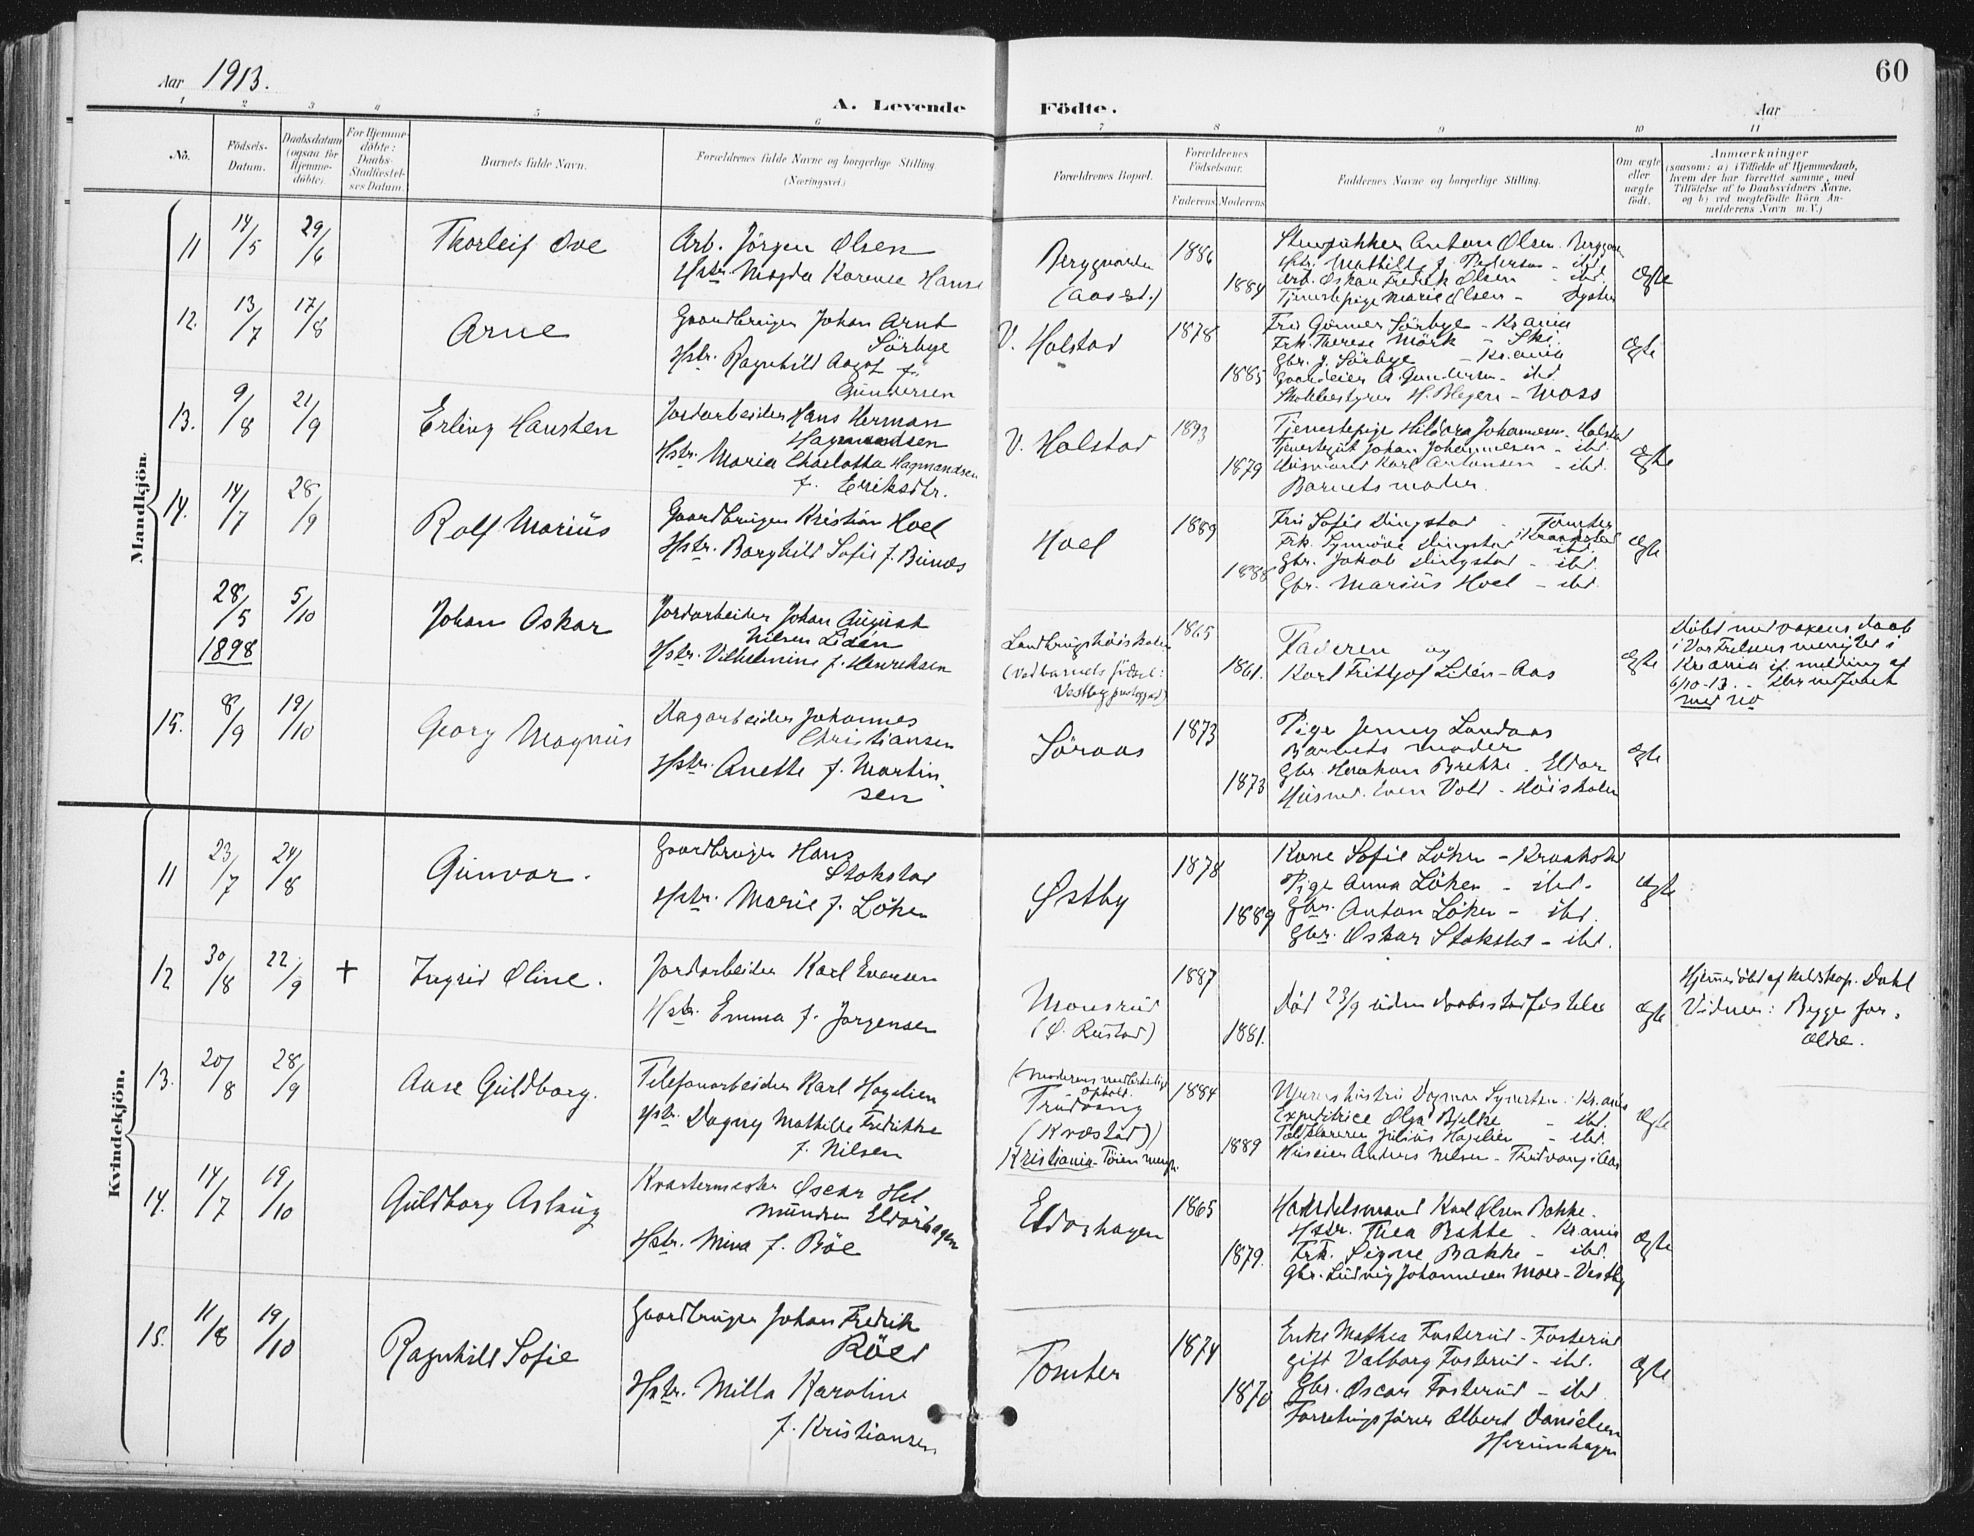 60
Aar 1913.
A. Levende Födte.
Aar
1 2 3 4 5 6 7 8 9 10 11
No.
Födsels-Datum.
Daabsdatum (ogsaa for Hjemme-döbte).
For Hjemme-döbte: Daabs-Stadfæstel-ses Datum.
Barnets fulde Navn.
Forældrenes fulde Navne og borgerlige Stilling (Næringsvei.)
Forældrenes Bopæl.
Forældrenes Födselsaar.
Faderens Moderens
Faddernes Navne og borgerlige Stilling.
Om ægte eller uægte födt.
Anmærkninger
(saasom: a) i Tilfælde af Hjemmedaab,
hvem der har forrettet samme, med
Tilföielse af to Daabsvidners Navne.
og b) ved uægtefödte Börn An-
melderens Navn m. V.)
Mandkjön.
11 14/5 29/6
Thorleif Ove
Arb. Jörgen Olsen
Hstr. Magda Karense Hansen
(Aas st.)
1886
1884
Anton Olsen
Hstr. Mathilde f. Pedersen - ibd.
Arb. Oskar Fredrik Olsen - ibd.
Tjenestepige Marie Olsen -
Ægte
12. 13/7 17/8
Arne
Gaardbruger Johan Arnt
Sörbye
Hstr. Ragnhild Aagot f.
Gundersen
V. Holstad
1878
1885
Fru Gunner Sörbye - Kr.ania
Frk. Therese Mörk - Ski
Gbr. J. Sörbye - Kr.ania
Gaardeier A. Gundersen - ibd.
- Moss
Ægte
13. 9/8 21/9
Erling Karsten
Jordarbeider Hans Herman
Hagmandsen
Hstr. Maria Charlotta Hagmandsen
f. Eriksdtr.
V. Holstad
1893
1879
Tjenestepige Hildora Johannesen - Holstad
Tjenestegut Johan Johannesen - ibd.
Karl Antonsen - ibd.
Barnets moder.
Ægte
14. 14/7 28/9
Rolf Marius
Gaardbruger Kristian Hoel
Hstr. Borghild Sofie f. Bunæs
Hoel
1889
1888
Fru Sofie Dingstad - Tomter
i Kraakstad
Frk. Synnöve Dingstad ibd.
Gbr. Jakob Dingstad - ibd.
Gbr. Marius Hoel - ibd.
Ægte
28/5 1898 5/10
Johan Oskar
Jordarbeider Johan August
Nilsen Lidén
Hstr. Vilhelmine f. Henriksen
Landbrugshöiskolen
(Ved barnets födsel:
Vestby
1865
1861.
Faderen og
Karl Fritjof Lidén - Aas
Ægte
Döbt med voxens daab
i Vor Frelsers menighed i
Kr.ania if. melding af
6/10-13.
med no
15. 8/9 19/10
Georg Magnus
Dagarbeider Johannes
Christiansen
Hstr. Anette f. Martin-
sen
Söraas
1873
1873
Pige Jenny Landaas
Barnets moder
Gbr. Haakon Brekke. Eldor
Husmd. Even Vold - Höiskolen
Ægte
Kvindekjön.
11 23/7 24/8
Gunvor.
Gaardbruger Hans
Stokstad
Hstr. Marie f. Löken
Østby
1878
1889
Kone Sofie Löken - Kraakstad
Pige Anna Löken - ibd.
Gbr. Anton Löken - ibd.
Gbr. Oskar Stokstad - ibd.
Ægte
12 30/8 22/9 +
Ingrid Oline.
Jordarbeider Karl Evensen
Hstr. Emma f. Jörgensen
Mousrud
(Ø. Rustad)
1887
1881.
Död 23/9 uden daabsstadfæstelse
Ægte
Hjemmedöbt af Dahl
Vidner: Begge for-
ældre.
13. 20/8 28/9
Aase Guldborg.
Telefonarbeider Karl Hagelien
Hstr. Dagny Mathilde Fredrikke
f. Nilsen
(Moderens midlertidige
ophold.
Trudvang
(Kvæstad))
Kristiania - Töien menigh.
1884
1889
Dagmar Syvertsen. Kr.ania
Expeditrice Olga Bjelke - ibd.
Julius Hagelien - ibd.
Huseier Anders Nilsen - Trudvang i Aas
Ægte
14. 14/7 19/10
Guldborg Aslaug
Kvartermester Oscar Hel
munden Eldorhagen
Hstr. Mina f. Böe
Eldorhagen
1865
1879.
Handelsmand Karl Olsen Bakke.
Hstr. Thea Bakke - Kr.ania
Frk. Signe Bakke - ibd.
Gbr. Ludvig Johannesen Moer - Vestby
Ægte
15. 11/8 19/10
Ragnhild Sofie
Gaardbruger Johan Fredrik
Röed
Hstr. Milla Karoline
f. Kristiansen
Tomter
1874
1870
Enke Mathea Fosterud - Fosterud
gift Valborg Fosterud - ibd.
Gbr. Oscar Fosterud - ibd.
Forretningsförer Albert Danielsen
Ægte